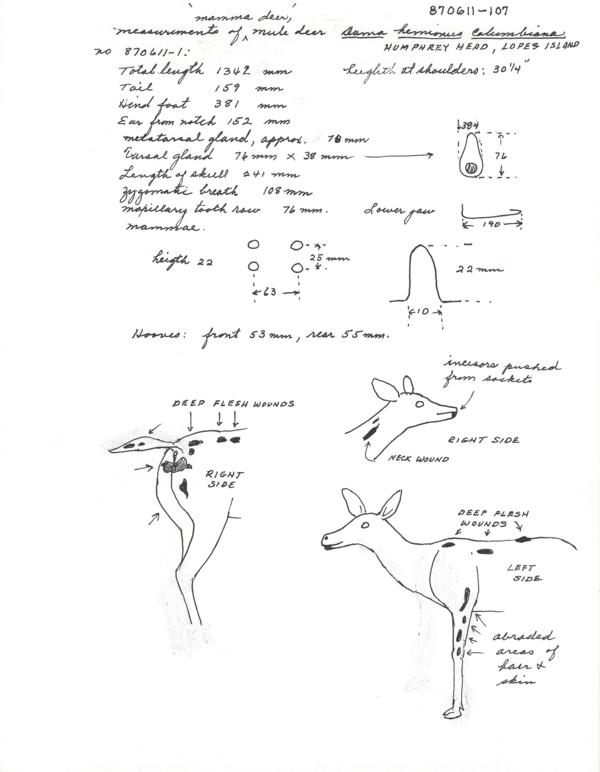 870611-107
'mamma deer,'
measurements of ^ mule deer Dama hemionus columbiana
HUMPHREY HEAD, LOPES ISLAND
no 870611-1:
Total length 1342 mm
heighth at shoulders: 30 1/4"
Tail 159 mm
Hind foot 381 mm
Ear from notch 152 mm
metatarsal gland, approx. 78 mm
Tarsal gland 76 mm x 38 mm
38
76
Length of skull 241 mm
zygomatic breath 108 mm
maxillary tooth row 76 mm.
Lower jaw
190
mammae.
heigth 22
25 mm
63
22 mm
10
Hooves: front 53 mm, rear 55 mm.
incisors pushed
from sockets
RIGHT SIDE
NECK WOUND
DEEP FLESH WOUNDS
RIGHT
SIDE
DEEP FLESH
WOUNDS
LEFT
SIDE
abraded
areas of
hair &
skin